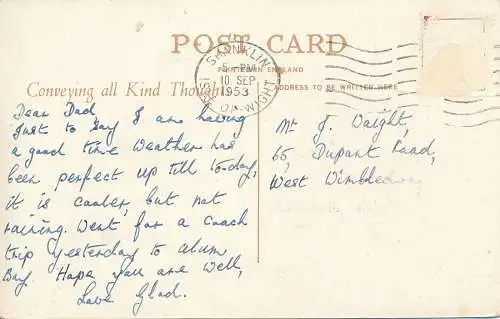 POST CARD
SHANKLIN
5 - PM
10 SEP
1953
ISLE OF WIGHT
PRINTED IN ENGLAND
Conveying all Kind Thoughts
ADDRESS TO BE WRITTEN HERE
Dear Dad
Just to say I am having
a good time Weather has
been perfect up till to-day,
it is cooler, but not
raining. Went for a coach
trip yesterday to Alum
Bay. Hope you are well,
Love Glad.
Mr J. Waight,
65, Dupont Road,
West Wimbledon,